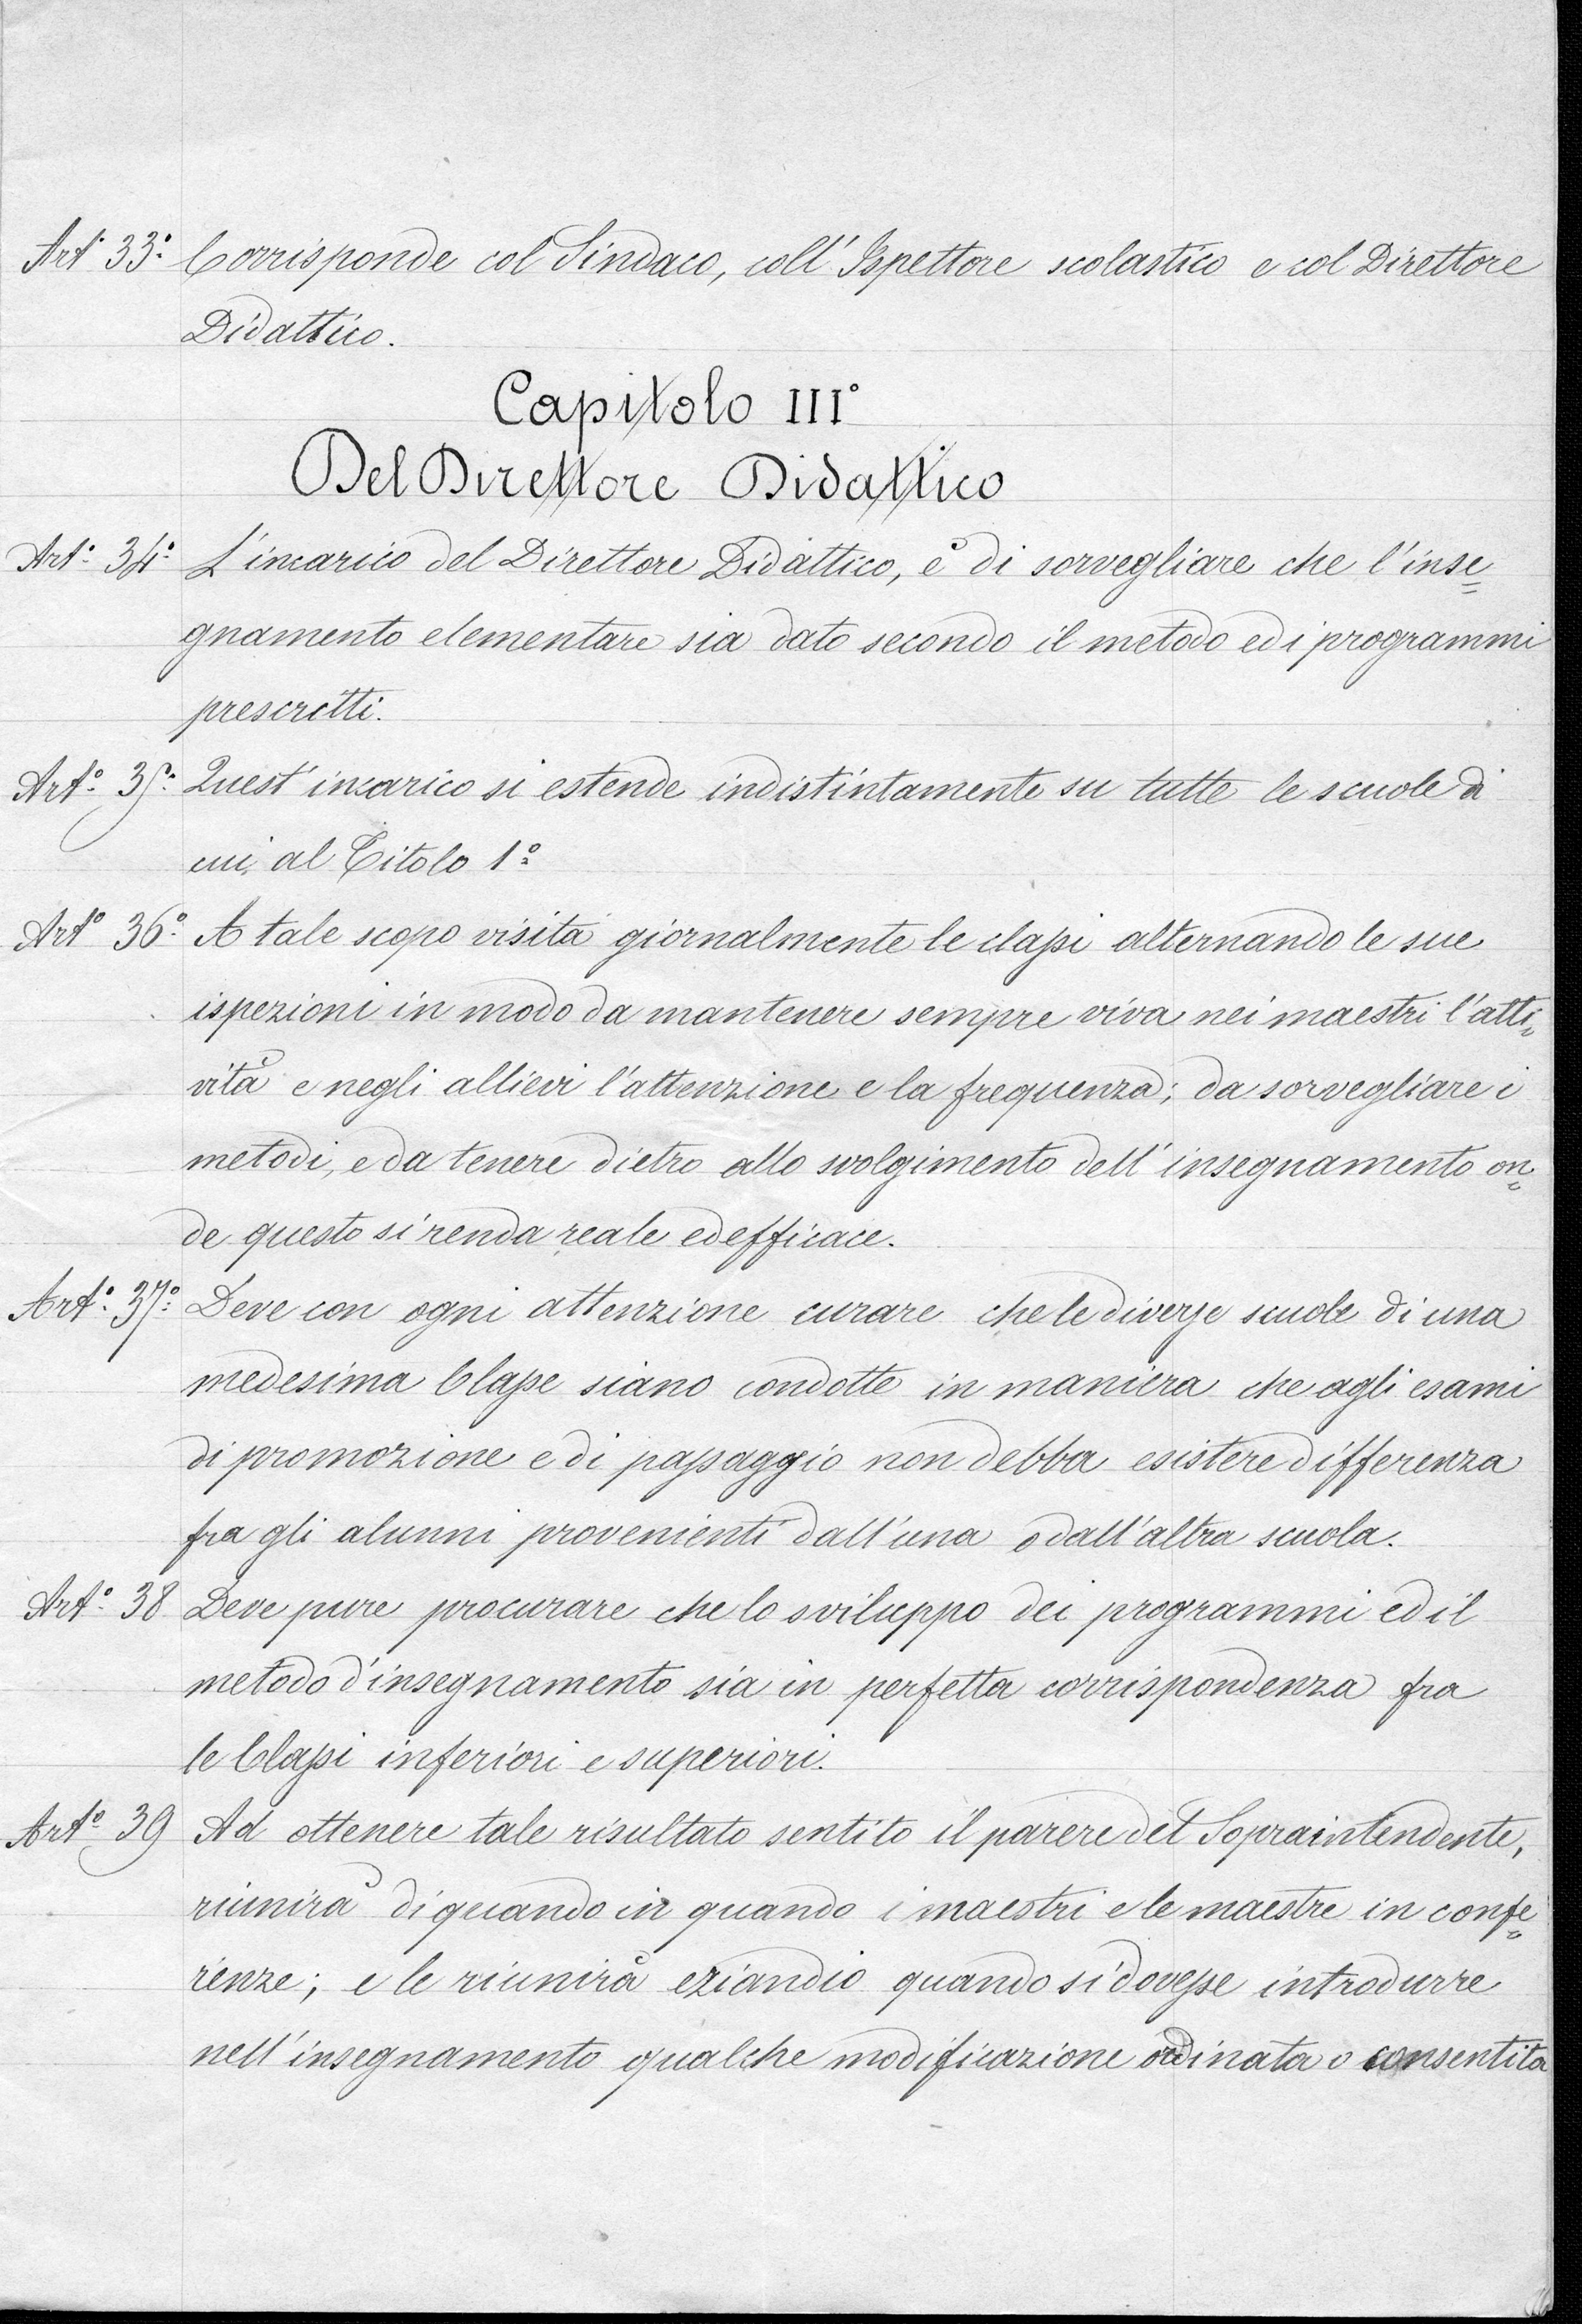 Art.° 33° Corrisponde col Sindaco, coll'Ispettore scolastico e col Direttore
Didattico.
Capitolo III°
Del Direttore Didattico
Art.° 34° L'incarico del Direttore Didattico, è di sorvegliare che l'inse=
gnamento elementare sia dato secondo il metodo ed i programmi
prescritti.
Art.° 35° Quest'incarico si estende indistintamente su tutte le scuole di
cui al Titolo 1°
Art.° 36° A tale scopo visita giornalmente le classi alternando le sue
ispezioni in modo da mantenere sempre viva nei maestri l'atti=
vità e negli allievi l'attenzione e la frequenza; da sorvegliare i
metodi, e da tenere dietro allo svolgimento dell'insegnamento on=
de questo si renda reale ed efficace.
Art.° 37° Deve con ogni attenzione curare che le diverse scuole di una
medesima Classe siano condotte in maniera che agli esami
di promozione e di passaggio non debba esistere differenza
fra gli alunni provenienti dall'una o dall'altra scuola.
Art.° 38 Deve pure procurare che lo sviluppo dei programmi ed il
metodo d'insegnamento sia in perfetta corrispondenza fra
le Classi inferiori e superiori.
Art.° 39 Ad ottenere tale risultato sentito il parere del Sopraintendente,
riunirà di quando in quando i maestri e le maestre in confe=
renze; e le riunirà eziandio quando si dovesse introdurre
nell'insegnamento qualche modificazione ordinata o consentita